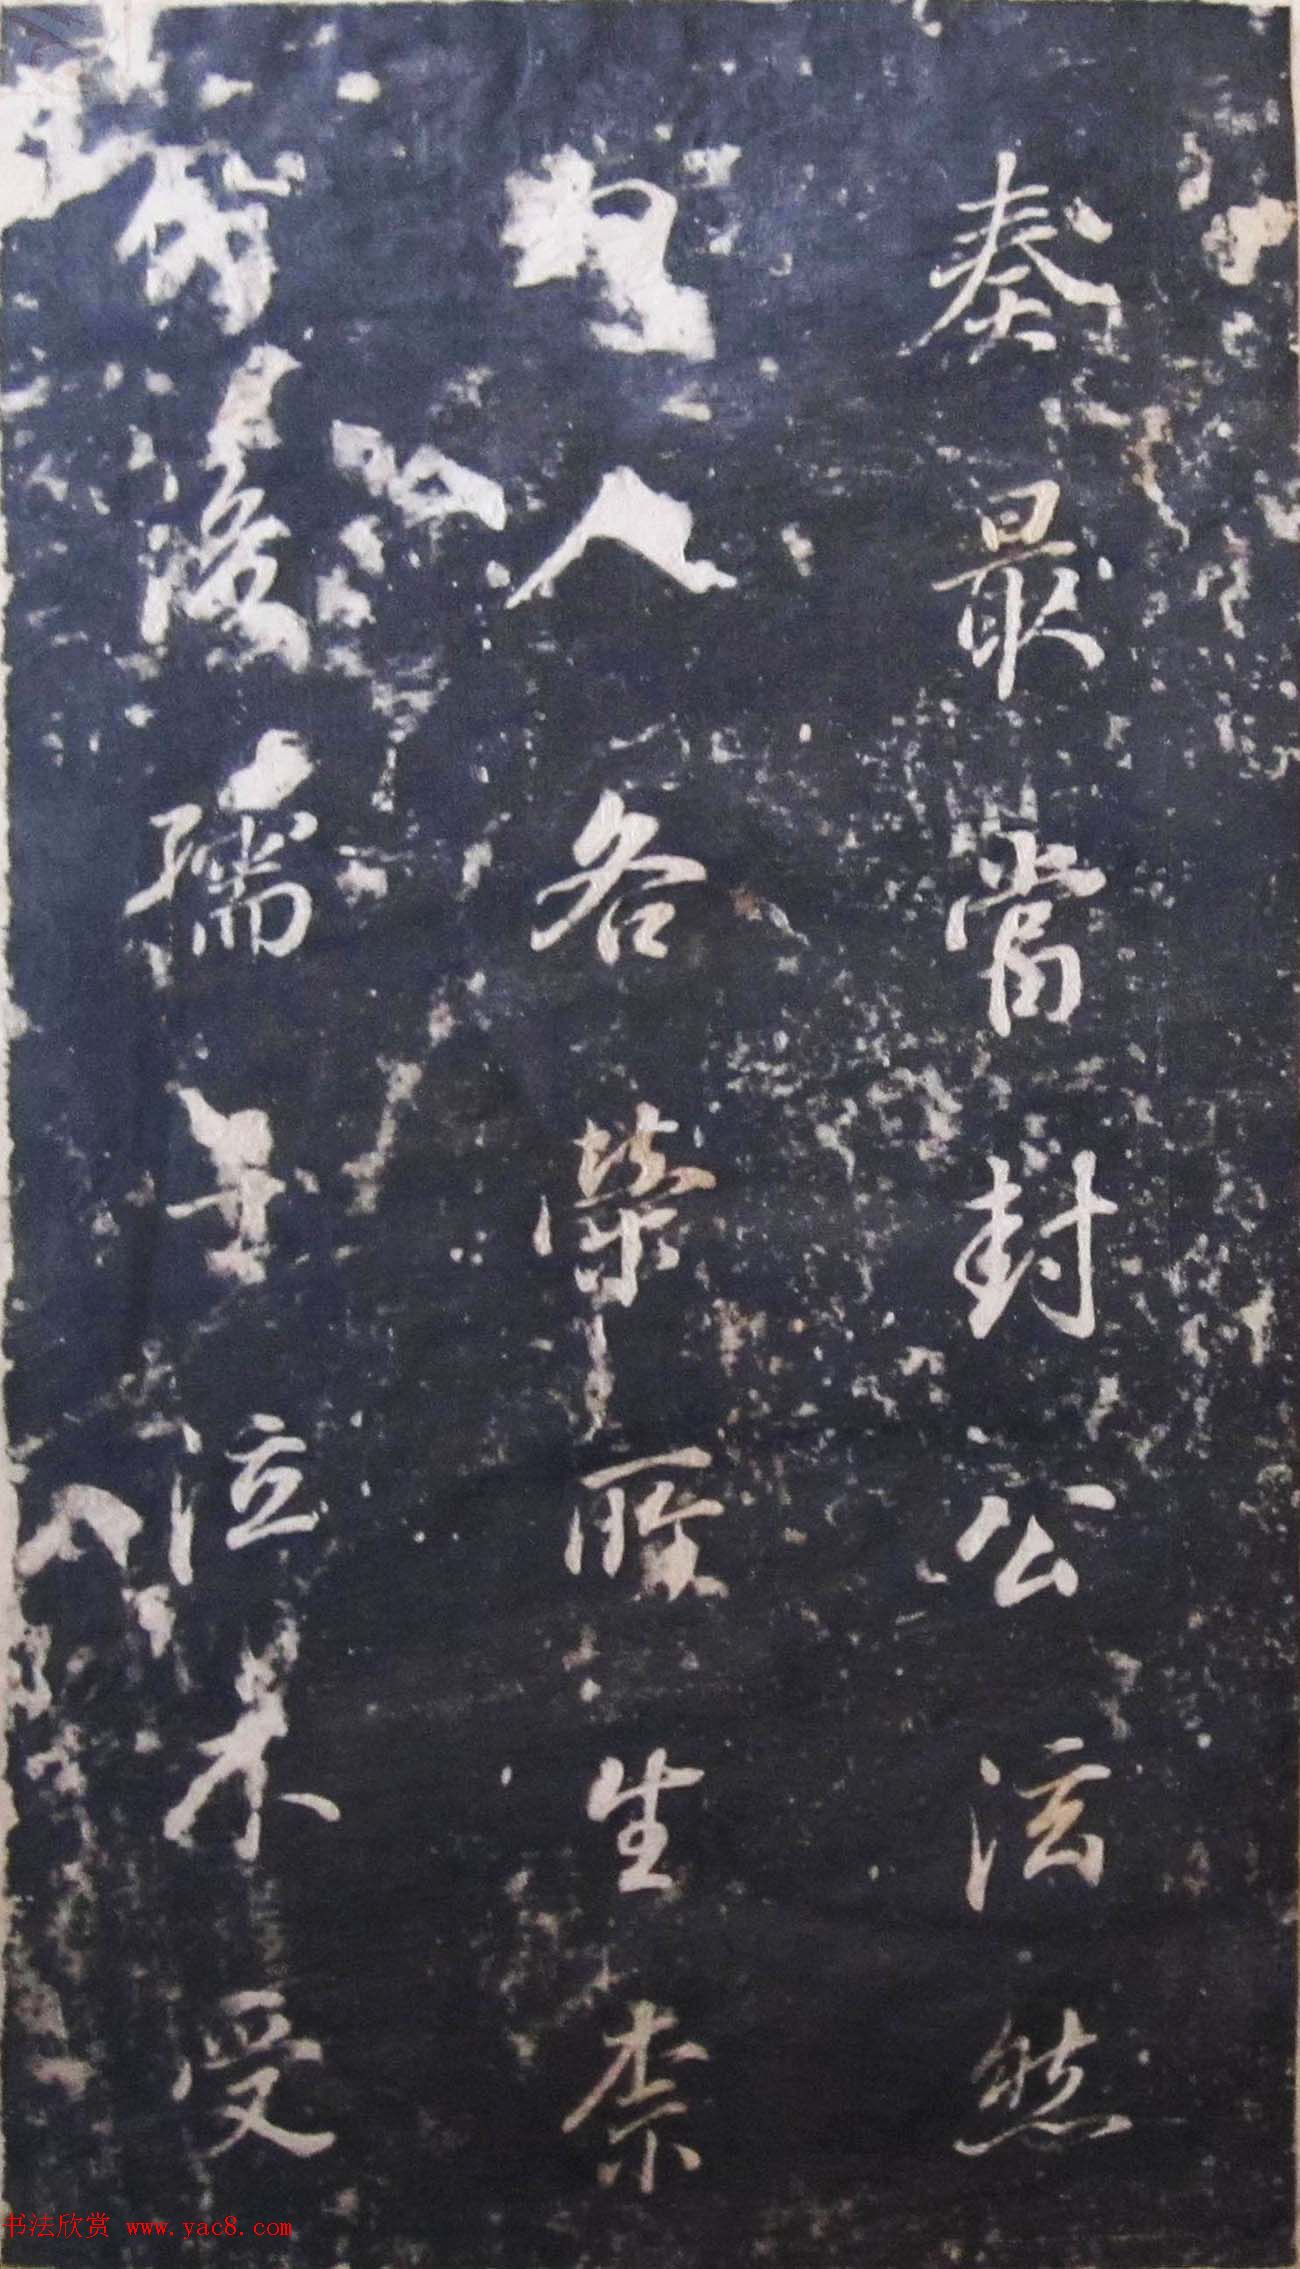 奏最當封公泫然
曰人各榮所生柰
何後孺泣不受
书法欣赏 www.yac8.com